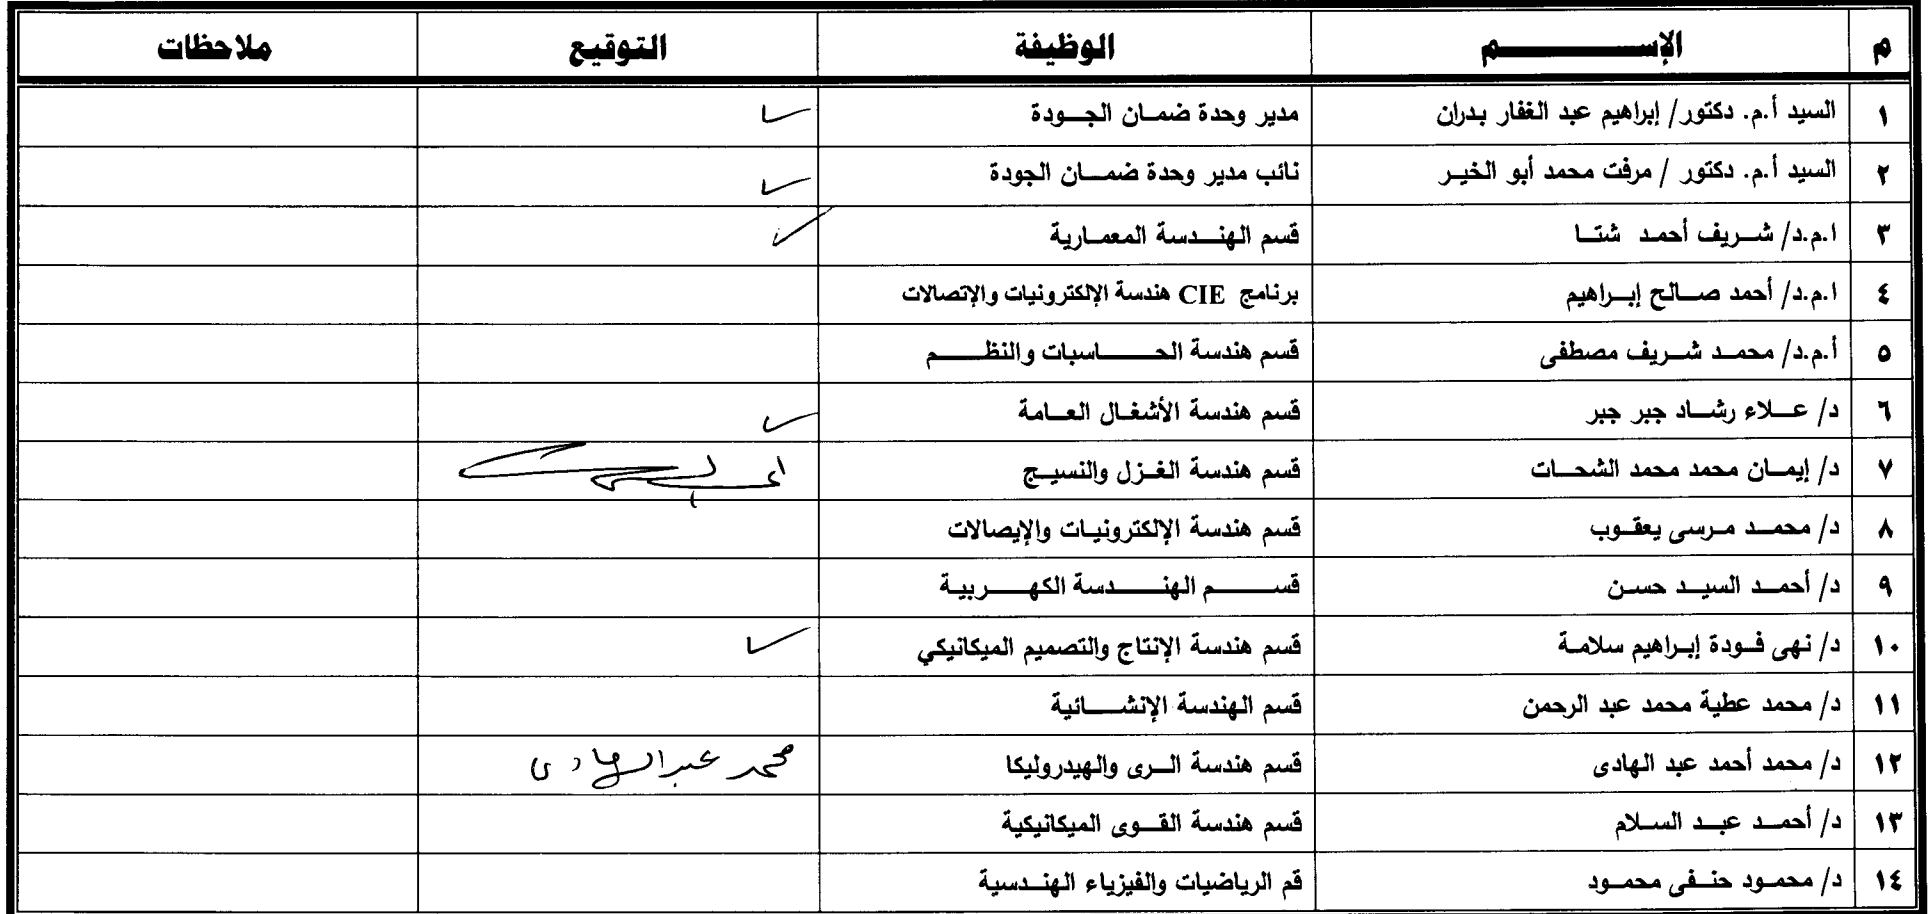 م الإســـــــم الوظيفة التوقيع ملاحظات
١ السيد أ.م. دكتور/ إبراهيم عبد الغفار بدران مدير وحدة ضمــان الجــودة
٢ السيد أ.م. دكتور / مرفت محمد أبو الخيـر نائب مدير وحدة ضمــان الجودة
٣ ا.م.د/ شــريف أحمـد شتــا قسم الهنــدسة المعمـارية
٤ ا.م.د/ أحمد صــالح إبــراهيم برنامج CIE هندسة الإلكترونيات والإتصالات
٥ أ.م.د/ محمــد شــريف مصطفى قسم هندسة الحــــاسبات والنظـــم
٦ د/ عــلاء رشــاد جبر جبر قسم هندسة الأشغـال العــامة
٧ د/ إيمــان محمد محمد الشحــات قسم هندسة الغـزل والنسيـج
٨ د/ محمــد مـرسى يعقــوب قسم هندسة الإلكترونيـات والإيصالات
٩ د/ أحمــد السيــد حسـن قســـــم الهنـــــدسة الكهــــربيـة
١٠ د/ نهى فــودة إبـراهيم سلامـة قسم هندسة الإنتاج والتصميم الميكانيكي
١١ د/ محمد عطية محمد عبد الرحمن قسم الهندسة الإنشـــائية
١٢ د/ محمد أحمد عبد الهادى قسم هندسة الــرى والهيدروليكا محمد عبدالهادى
١٣ د/ أحمــد عبــد الســلام قسم هندسة القــوى الميكانيكية
١٤ د/ محمــود حنــفى محمــود قم الرياضيات والفيزياء الهنــدسية